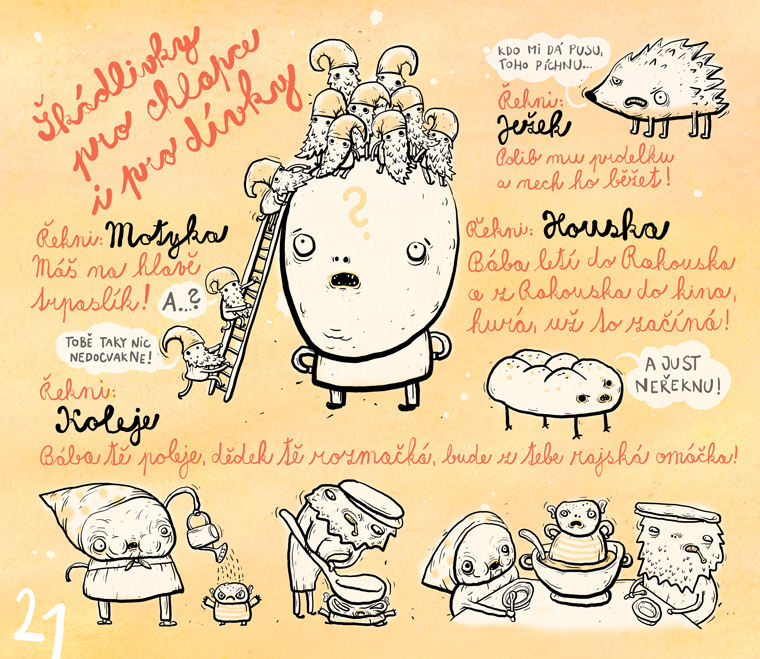 Škádlivky
pro chlapce
i pro dívky
KDO MI DÁ PUSU,
TOHO PÍCHNU...
Řekni:
Ježek
Polib mu prdelku
a nech ho běžet!
?
Řekni: Motyka
Máš na hlavě
trpaslík!
A...?
TOBĚ TAKY NIC
NEDOCVAKNE!
Řekni: Houska
Bába letí do Rakouska
a z Rakouska do kina,
hurá, už to začíná!
A JUST
NEŘEKNU!
Řekni:
Koleje
Bába tě poleje, dědek tě rozmačká, bude z tebe rajská omáčka!
21